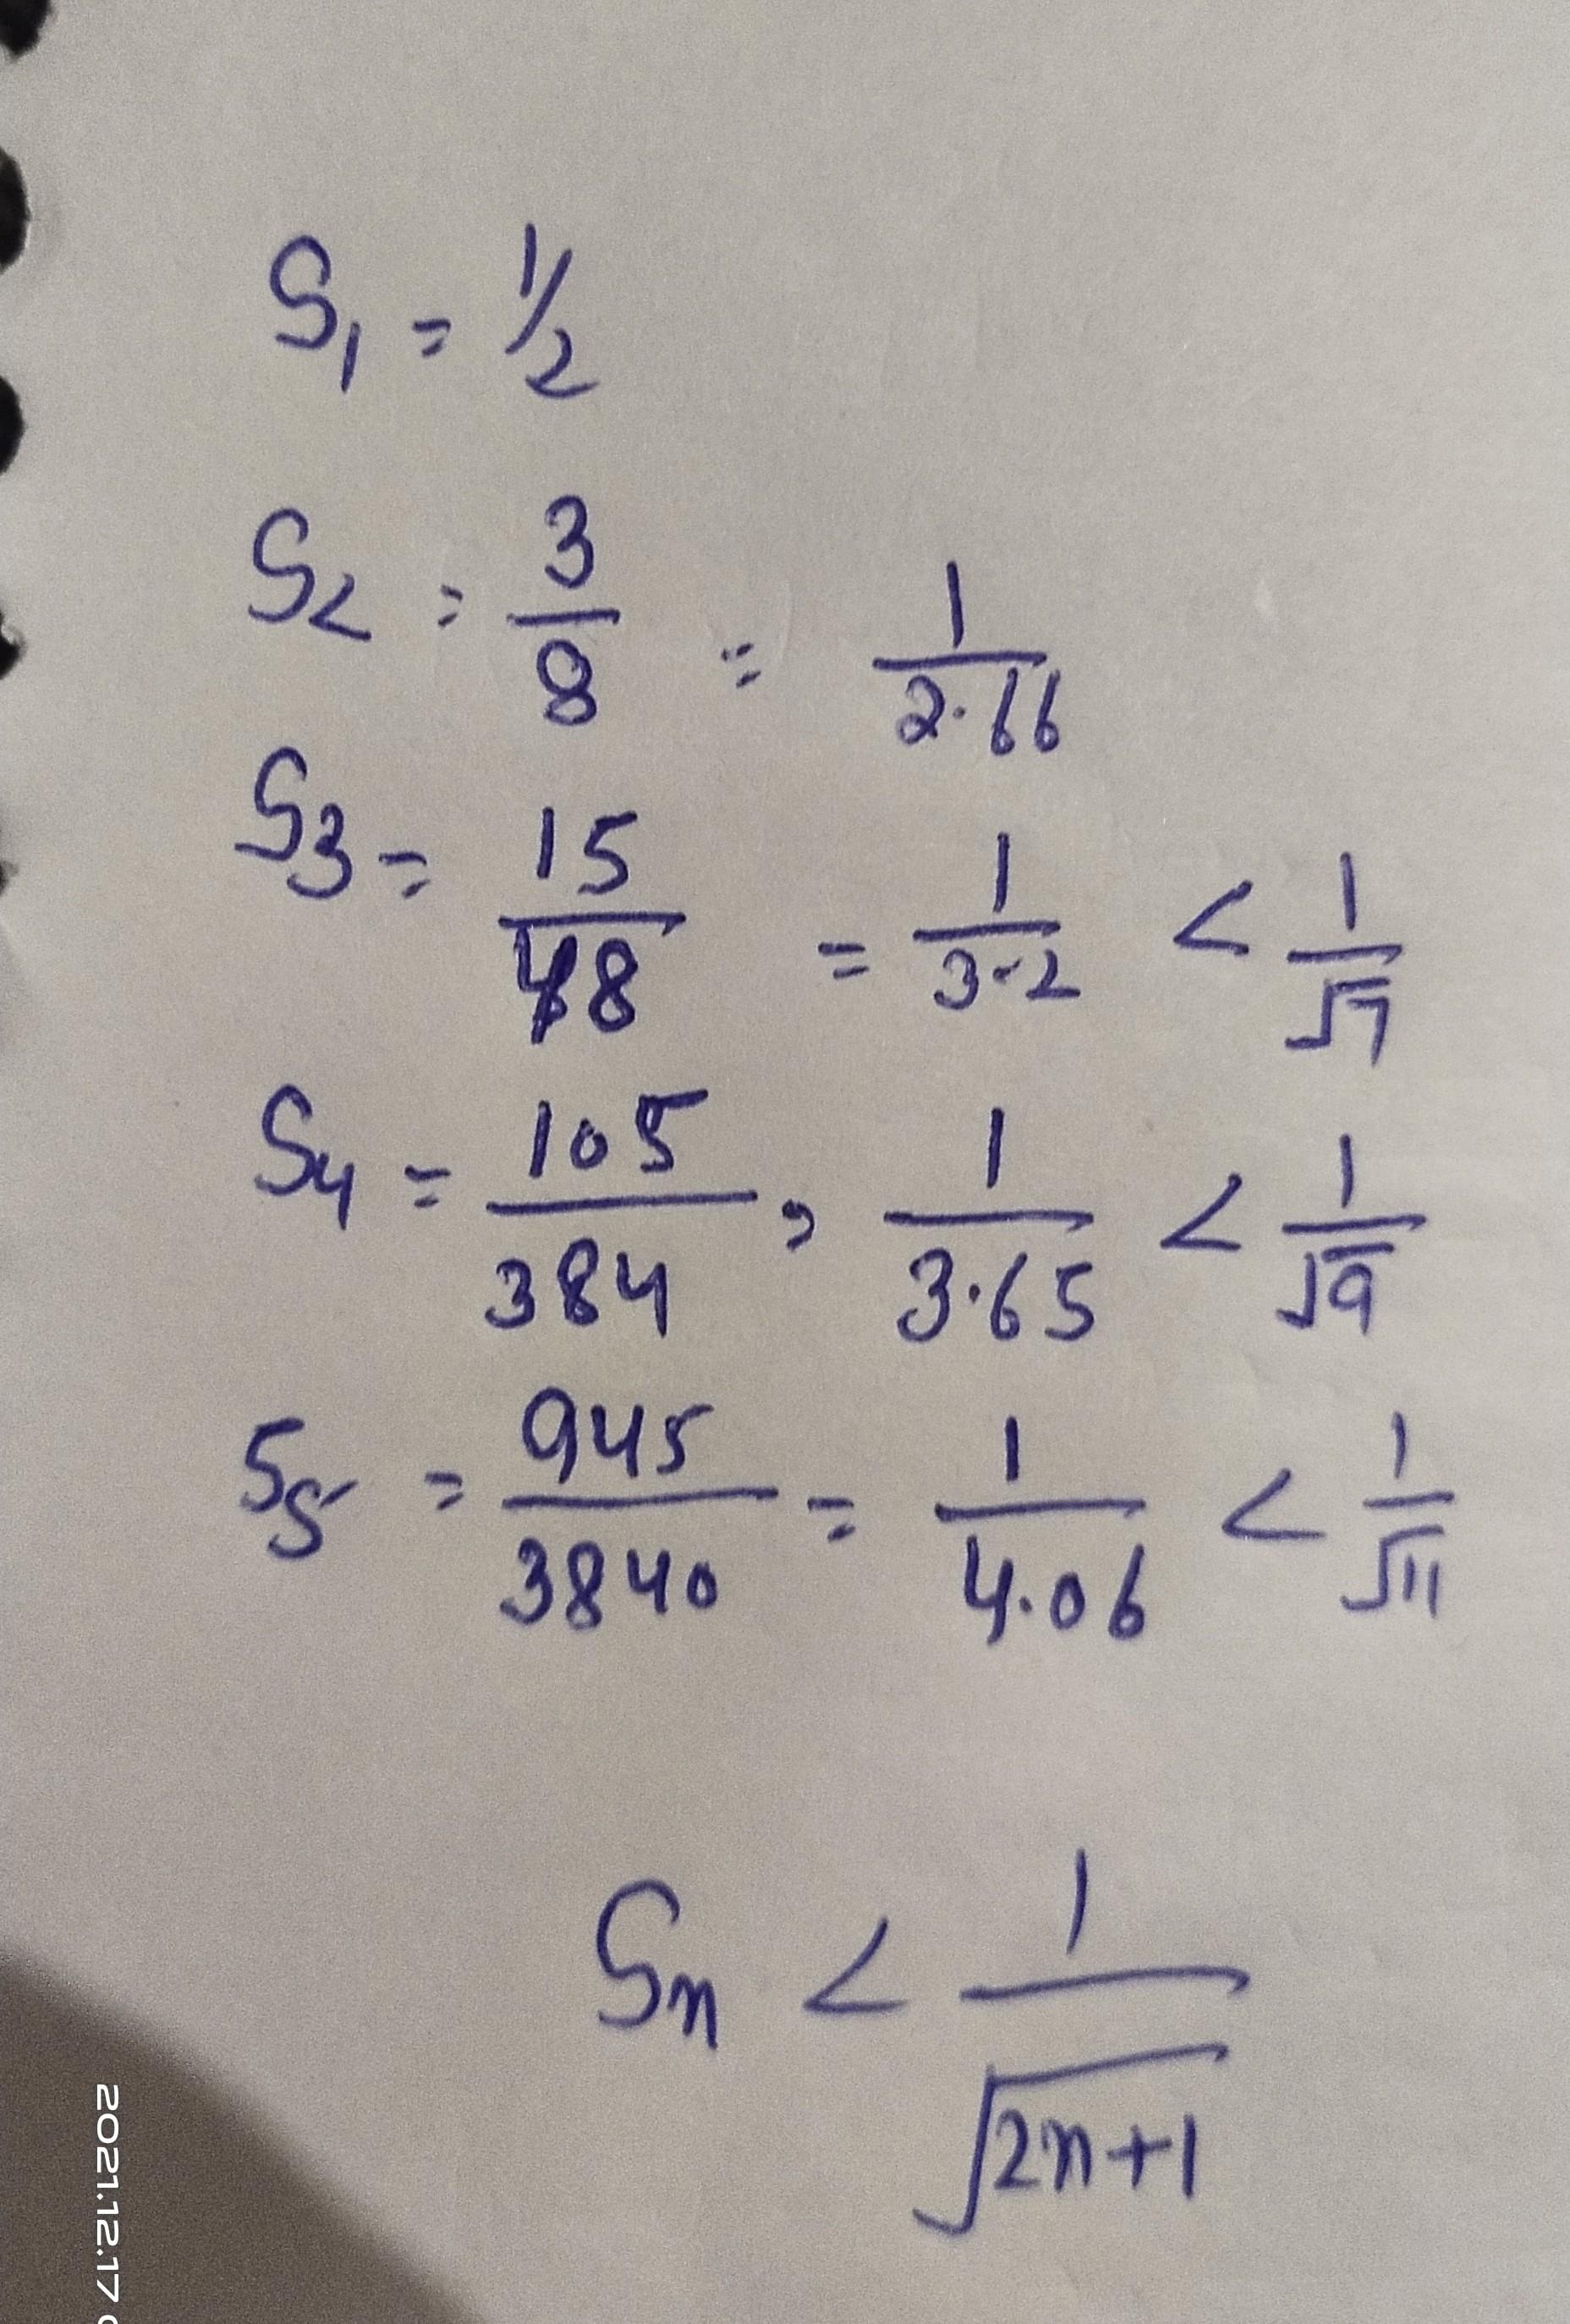 S₁ = 1/2
S₂ = 3/8 = 1/2.66
S₃ = 15/48 = 1/3.2 < 1/√7
S₄ = 105/384 = 1/3.65 < 1/√9
S₅ = 945/3840 = 1/4.06 < 1/√11
Sn < 1/√(2n+1)
2021.12.17